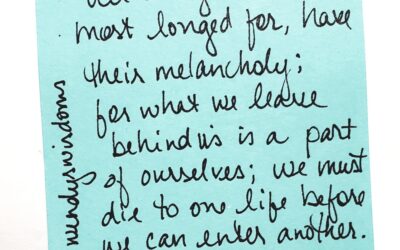 most longed for, have
their melancholy;
for what we leave
behind us is a part
of ourselves; we must
die to one life before
we can enter another.
wendyswisdoms